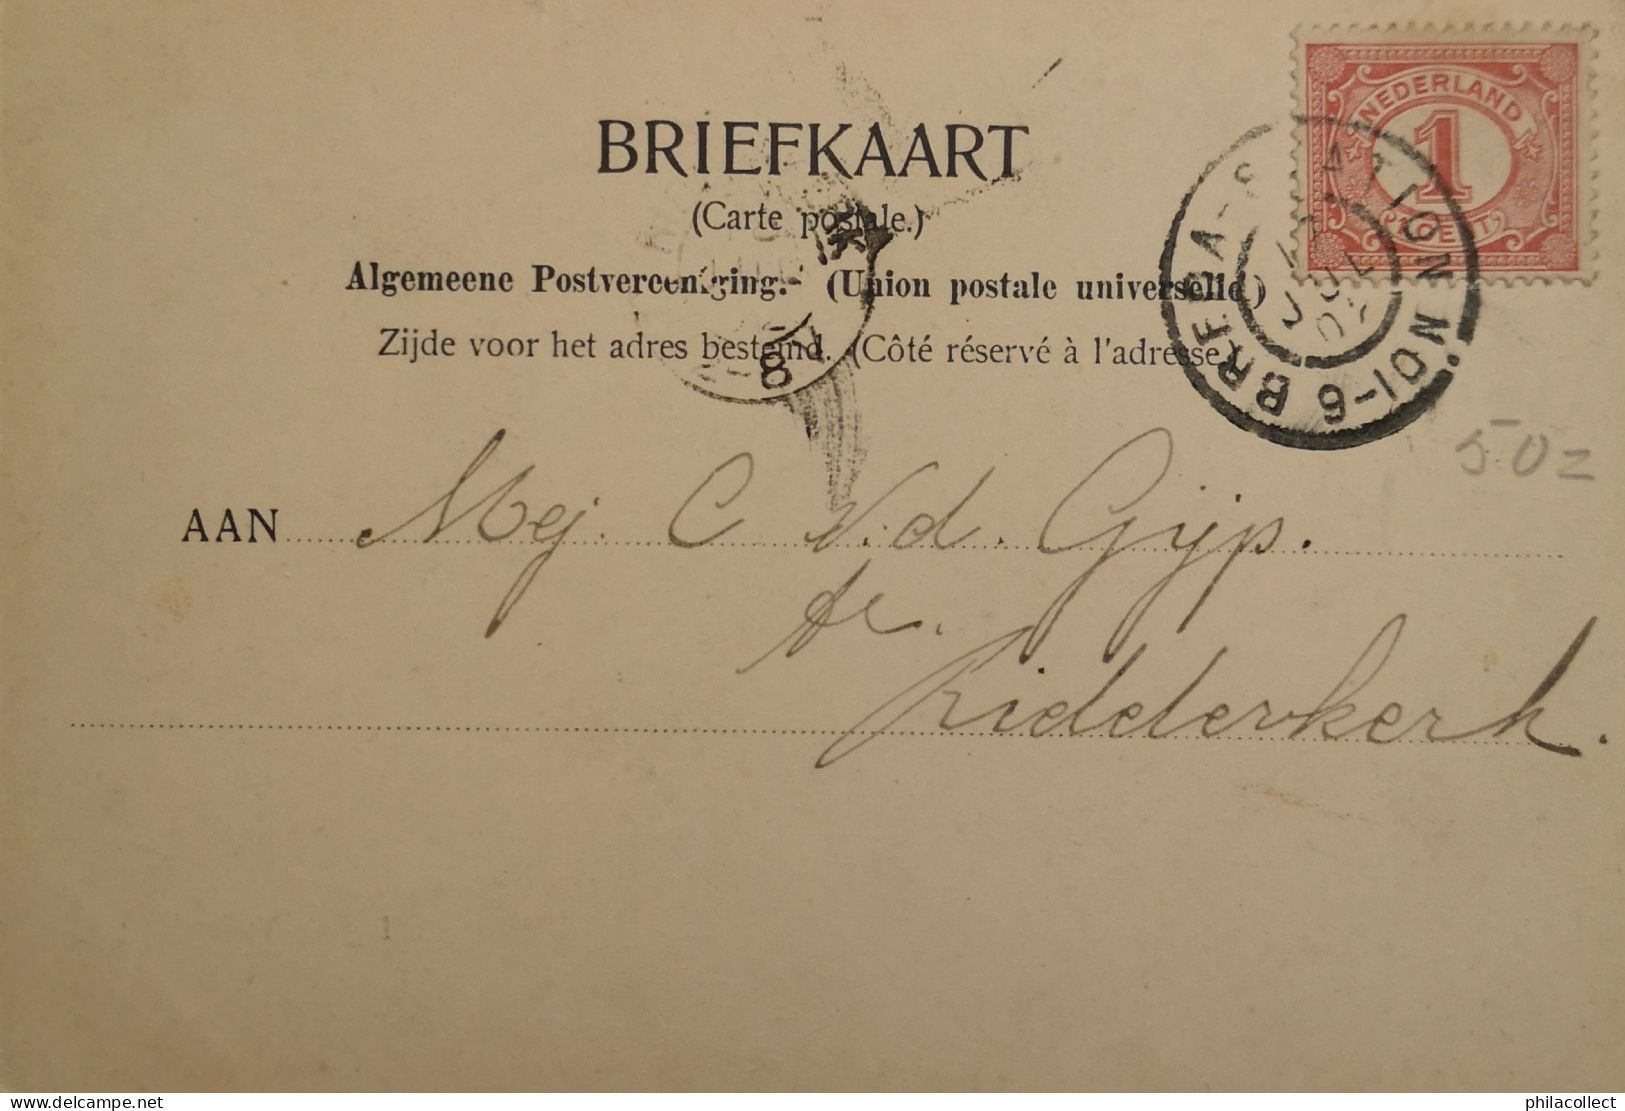 NEDERLAND
1
CENT
BRIEFKAART
(Carte postale.)
BREDA-STATION
N.O 1-6
Algemeene Postvereeniging.- (Union postale universelle)
Zijde voor het adres bestemd. (Côté réservé à l'adresse.)
8
50
AAN Mej. C v.d. Gijp.
te.
Ridderkerk.
delcampe.net
philacollect